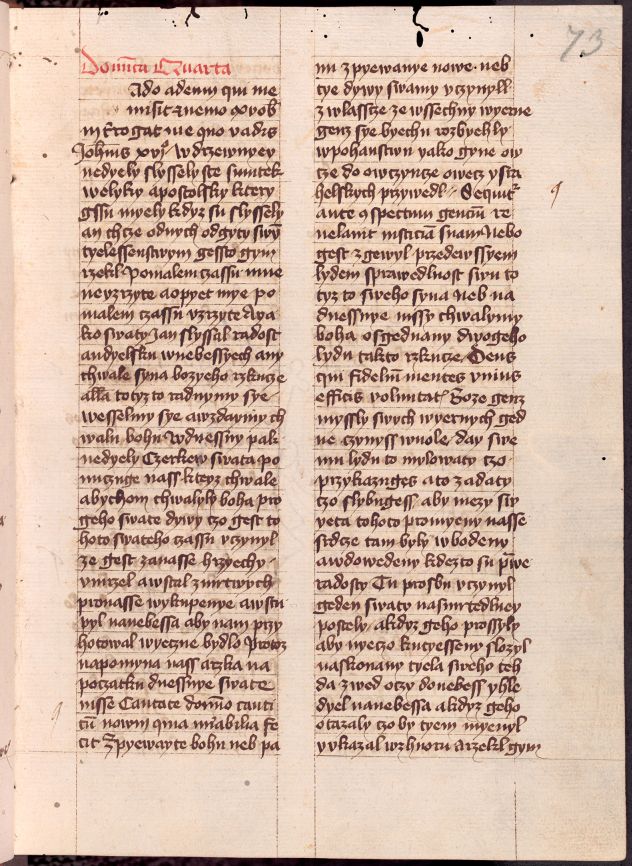 73
Domīca Quarta
Ado ad eum qui me
misit & nemo ex vob
interrogat me quo vadis
Johīs xvj° W drzewnyey
nedyely slysseli ste swutek
welyky apostolsky ktery
gssu myely kdyz su slysseli
an chcze od nych odgyty swu
tyelessenstwym gessto gym
rzekl Po malem czassu mne
neuzrzyte a opyet mye po
malem czassu vzrzyte A ya
ko swaty Jan slyssal radost
andyelsku w nebessyech any
chwale syna bozyeho rzkucze
alla totyzto radugmy sye
wesselmy sye a wzdaymy ch
walu bohu W dnessny pak
nedyely Czerkew swata po
nuczuge nass k teyz chwale
abychom chwalyly boha pro
geho swate dywy czo gest to
hoto swateho czassu vczynyl
ze gest za nasse hrzyechy
vmrzel a wstal z mrtwych
pro nasse wykupenye a wstu
pyl na nebessa aby nam przy
hotowal wyeczne bydlo Protoz
napomyna nass a rzka na
poczatku dnessnye swate
misse Cantate domīo canti
cū nowm quia mirabilia fe
cit Zpyewayte bohu neb pa
nu zpyewanye nowe neb
tye dywy swamy vczynyl
zwlasscze ze wssechny wyerne
genz sye byechu rozbyehly
w pohanstwu yako gyne ow
cze do owczyncze owecz ysra
helskych przywedl Sequitur
ante conspectum genciū re
uelauit iusticiā suam Nebo
gest zgewyl przede wssyem
lydem sprawedlnost swu to
tyz to sweho syna Neb na
dnessnye missy chwalymy
boha o sgednany dwogeho
lydu takto rzkucze Deus
qui fideliū mentes vnius
efficis voluntat Boze genz
myssly swych wyernych ged
ne czynyss wuole day swe
mu lydu to mylowaty czo
przykazuges a to zadaty
czo slybuges aby mezy swy
yeta tohoto promyeny nasse
srdcze tam byly wbodeny
a wdowedeny kdezto su prwe
radosty Tu prosbu vczynyl
geden swaty na smrtedlney
postely a kdyz geho prossyly
aby nyeczo k utyesseny slozyl
na skonany tyela sweho teh
da zwed oczy do nebess yhle
dyel na nebessa a kdyz geho
otazaly czo by tyem myenyl
y vkazal wzhuoru a rzekl gym